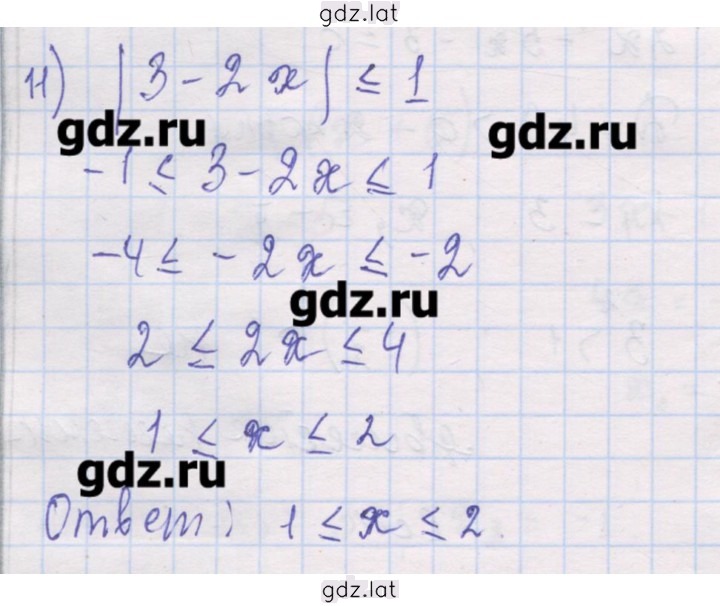 gdz.lat
11) |3 - 2x| ≤ 1
gdz.ru
gdz.ru
-1 ≤ 3 - 2x ≤ 1
-4 ≤ -2x ≤ -2
gdz.ru
2 ≤ 2x ≤ 4
1 ≤ x ≤ 2
gdz.ru
Ответ: 1 ≤ x ≤ 2.
gdz.lat